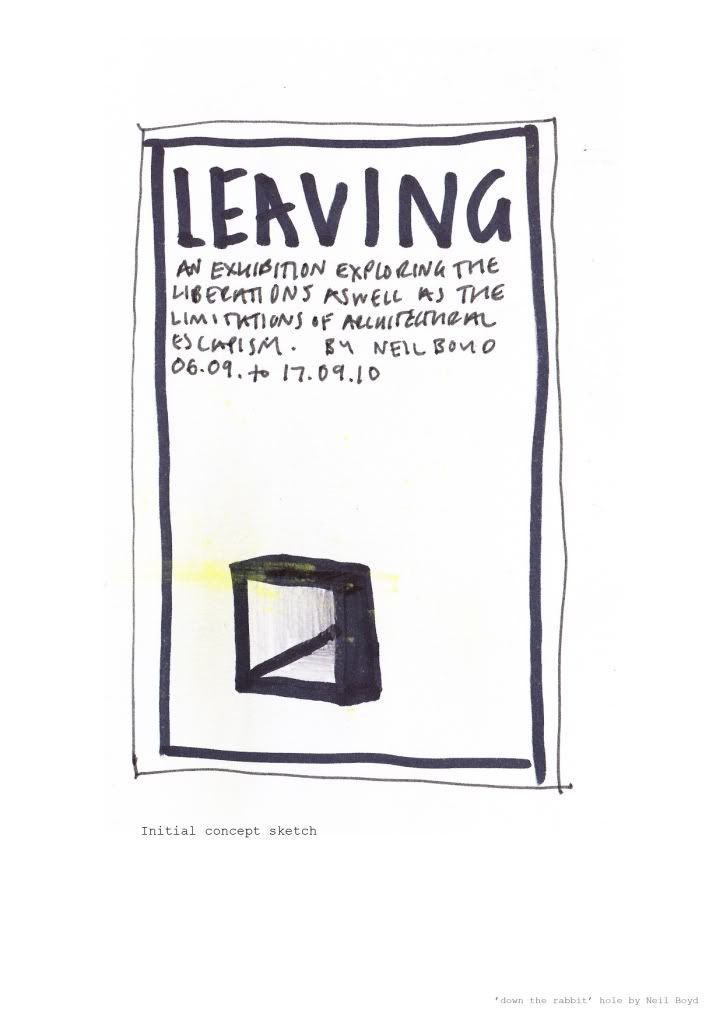 LEAVING
AN EXHIBITION EXPLORING THE
LIBERATIONS ASWELL AS THE
LIMITATIONS OF ARCHITECTURAL
ESCAPISM. BY NEIL BOYD
06.09. to 17.09.10
Initial concept sketch
'down the rabbit' hole by Neil Boyd